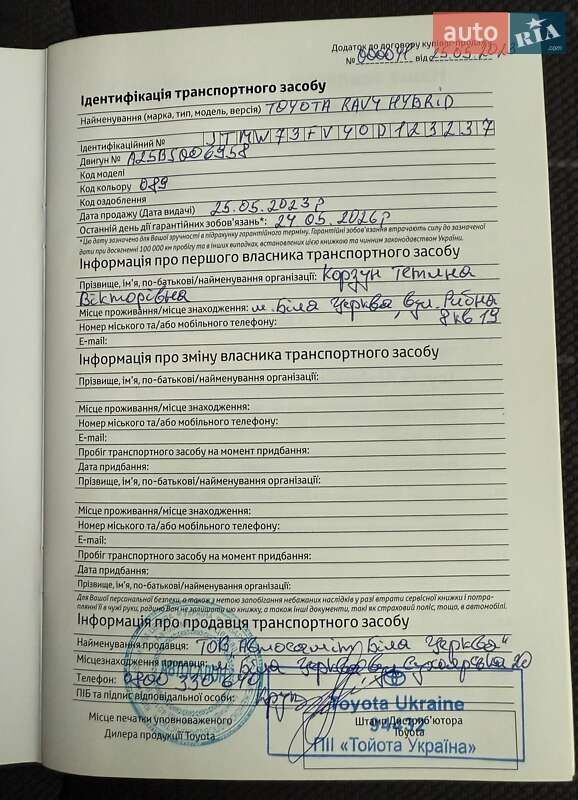 auto RIA.com
Додаток до договору купівлі-продажу
№ 000041 від 25.05.2023
Ідентифікація транспортного засобу
Найменування (марка, тип, модель, версія) TOYOTA RAV4 HYBRID
Ідентифікаційний № JTMW73FV40D123237
Двигун № A25BS006958
Код моделі
Код кольору 089
Код оздоблення
Дата продажу (Дата видачі) 25.05.2023р
Останній день дії гарантійних зобов'язань*: 24.05.2026р
*Цю дату зазначено для Вашої зручності в підрахунку гарантійного терміну. Гарантійні зобов'язання втрачають силу до зазначеної
дати при досягненні 100 000 км пробігу та в інших випадках, встановлених цією книжкою та чинним законодавством України.
Інформація про першого власника транспортного засобу
Прізвище, ім'я, по-батькові/найменування організації: Корзун Тетяна
Вікторівна
Місце проживання/місце знаходження: м. Біла Церква, вул. Рибна
Номер міського та/або мобільного телефону: 8 кв 19
E-mail:
Інформація про зміну власника транспортного засобу
Прізвище, ім'я, по-батькові/найменування організації:
Місце проживання/місце знаходження:
Номер міського та/або мобільного телефону:
E-mail:
Пробіг транспортного засобу на момент придбання:
Дата придбання:
Прізвище, ім'я, по-батькові/найменування організації:
Місце проживання/місце знаходження:
Номер міського та/або мобільного телефону:
E-mail:
Пробіг транспортного засобу на момент придбання:
Дата придбання:
Прізвище, ім'я, по-батькові/найменування організації:
Для Вашої персональної безпеки, а також з метою запобігання небажаних наслідків у разі втрати сервісної книжки і потра-
плянні її в чужі руки, радимо Вам не залишати цю книжку, а також інші документи, такі як страховий поліс, тощо, в автомобілі.
Інформація про продавця транспортного засобу
Найменування продавця: ТОВ Автосаміт Біла Церква"
Місцезнаходження продавця: м Біла Церква вул Сухоярська 20
Телефон: 0800 330 640
ПІБ та підпис відповідальної особи:
Toyota Ukraine
94432
ПІІ «Тойота Україна»
Місце печатки уповноваженого
Дилера продукції Toyota
Штамп Дистриб'ютора
Toyota